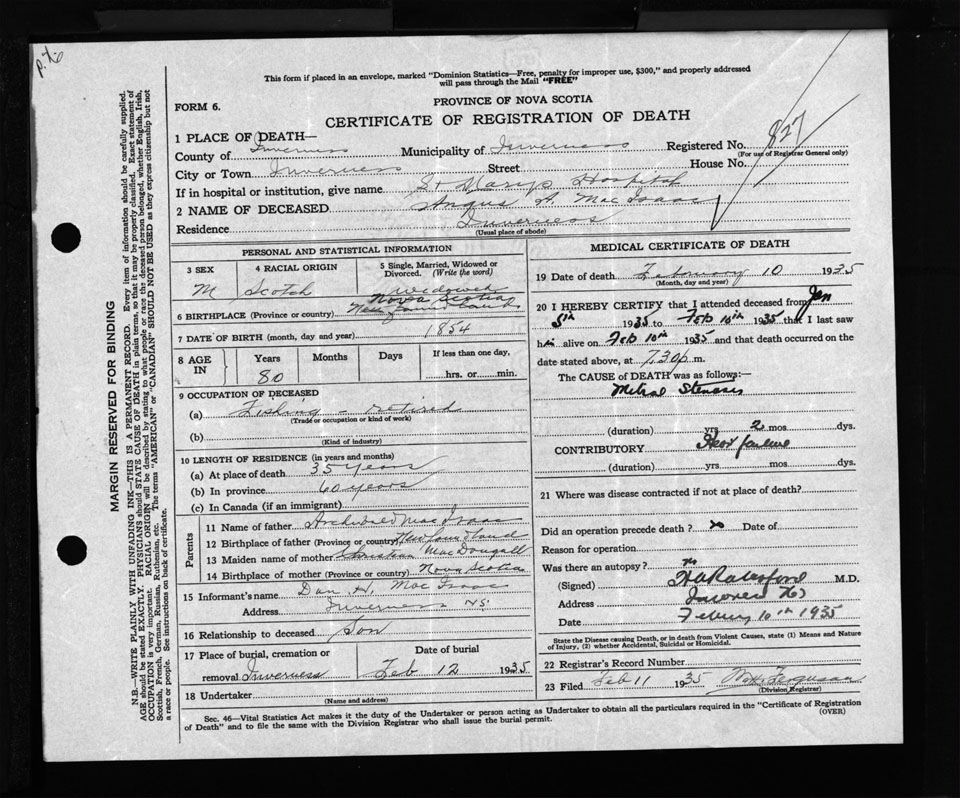 p. 76
This form if placed in an envelope, marked "Dominion Statistics—Free, penalty for improper use, $300," and properly addressed
will pass through the Mail "FREE"
PROVINCE OF NOVA SCOTIA
FORM 6.
CERTIFICATE OF REGISTRATION OF DEATH
1 PLACE OF DEATH—
Registered No. 827
(For use of Registrar General only)
County of Inverness Municipality of Inverness
City or Town Inverness Street House No.
If in hospital or institution, give name St Marys Hospital
2 NAME OF DECEASED Angus A. MacIsaac
Residence Inverness
(Usual place of abode)
PERSONAL AND STATISTICAL INFORMATION
3 SEX 4 RACIAL ORIGIN 5 Single, Married, Widowed or Divorced. (Write the word)
M Scotch Widower
Nova Scotia
6 BIRTHPLACE (Province or country) New found land
7 DATE OF BIRTH (month, day and year) 1854
8 AGE IN Years Months Days If less than one day,
80 hrs. or min.
9 OCCUPATION OF DECEASED
(a) Fishing - retired
(Trade or occupation or kind of work)
(b)
(Kind of industry)
10 LENGTH OF RESIDENCE (in years and months)
(a) At place of death 35 years
(b) In province 60 years
(c) In Canada (if an immigrant)
Parents
11 Name of father Archibald MacIsaac
12 Birthplace of father (Province or country) Newfoundland
13 Maiden name of mother Christian MacDougall
14 Birthplace of mother (Province or country) Nova Scotia
15 Informant's name Dan H. MacIsaac
Address Inverness NS
16 Relationship to deceased Son
17 Place of burial, cremation or removal Inverness
Date of burial
Feb 12 1935
18 Undertaker
(Name and address)
MEDICAL CERTIFICATE OF DEATH
19 Date of death February 10 1935
(Month, day and year)
20 I HEREBY CERTIFY that I attended deceased from Jan
5th 1935 to Feb 10th 1935 that I last saw
him alive on Feb 10th 1935 and that death occurred on the
date stated above, at 7.30 p m.
The CAUSE OF DEATH was as follows:
Mitral Stenosis
(duration) yrs 2 mos. dys.
CONTRIBUTORY Heart failure
(duration) yrs mos. dys.
21 Where was disease contracted if not at place of death?
Did an operation precede death? no Date of
Reason for operation
Was there an autopsy? no
(Signed) M.D.
Address Inverness NS
Date February 10th 1935
State the Disease causing Death, or in death from Violent Causes, state (1) Means and Nature
of Injury, (2) whether Accidental, Suicidal or Homicidal.
22 Registrar's Record Number
23 Filed Feb 11 1935 Ferguson
(Division Registrar)
Sec. 46—Vital Statistics Act makes it the duty of the Undertaker or person acting as Undertaker to obtain all the particulars required in the "Certificate of Registration
of Death" and to file the same with the Division Registrar who shall issue the burial permit.
(OVER)
MARGIN RESERVED FOR BINDING
N.B.—WRITE PLAINLY WITH UNFADING INK—THIS IS A PERMANENT RECORD. Every item of information should be carefully supplied.
AGE should be stated EXACTLY. PHYSICIANS should STATE CAUSE OF DEATH in plain terms, so that it may be properly classified. Exact statement of
OCCUPATION is very important. RACIAL ORIGIN will be described by stating to what people or race the deceased person belonged, whether English, Irish,
Scottish, French, German, Russian, Ruthenian, etc. The terms "AMERICAN" or "CANADIAN" SHOULD NOT BE USED as they express citizenship but not
a race or people. See instructions on back of certificate.